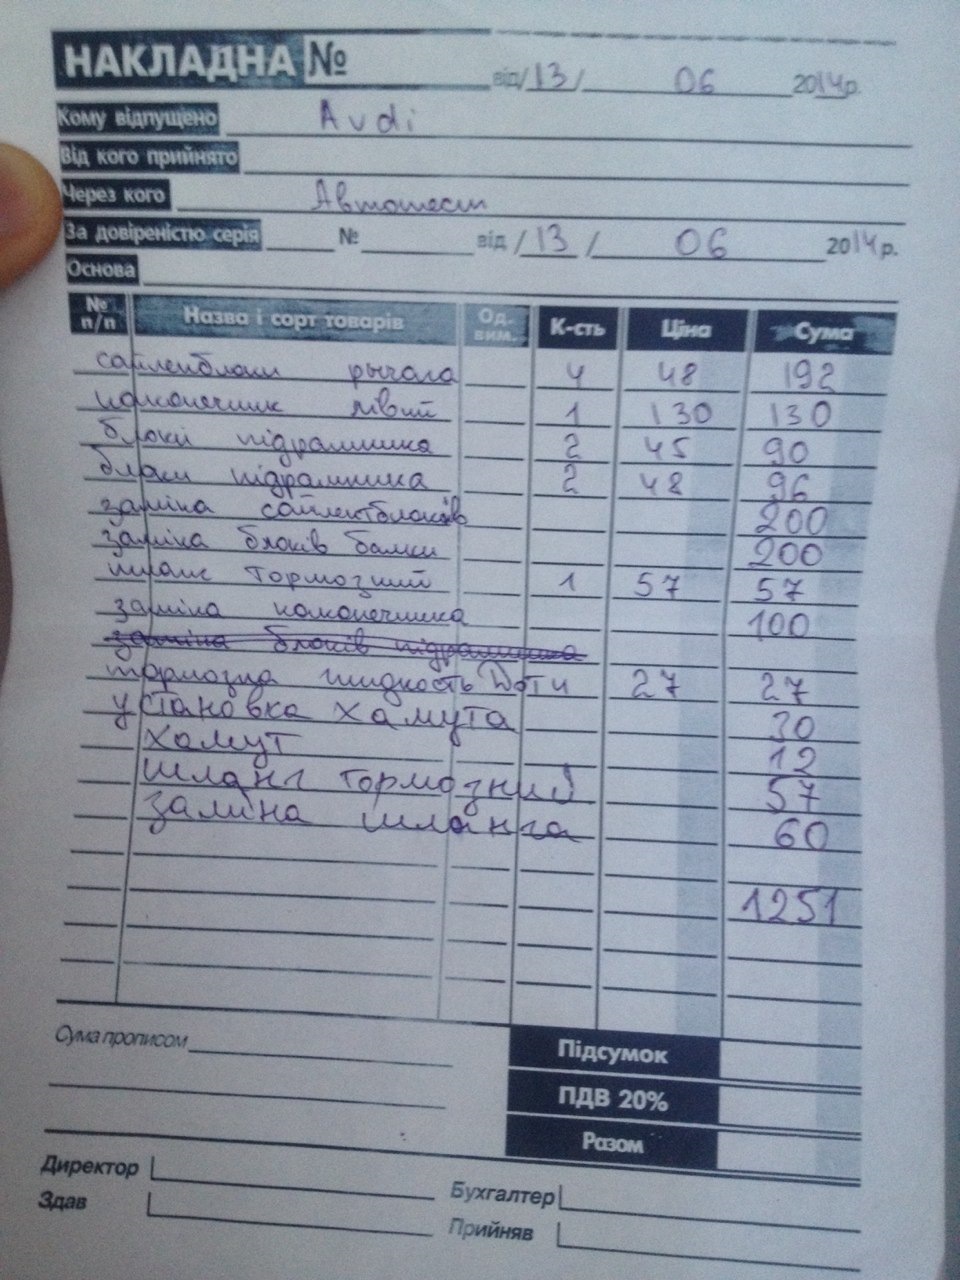 НАКЛАДНА № від /13/ 06 2014р.
Кому відпущено Avdi
Від кого прийнято
Через кого Автотест
За довіреністю серія № від /13/ 06 2014р.
Основа
№ п/п Назва і сорт товарів Од. вим. К-сть Ціна Сума
сайленблоки рычага 4 48 192
наконечник лівий 1 130 130
блоки підрамника 2 45 90
блоки підрамника 2 48 96
заміна сайлентблоків 200
заміка блоків балки 200
шланг тормозний 1 57 57
заміна наконечника 100
заміна блоків підрамника
тормозна жидкость Dот4 27 27
установка хамута 30
хамут 12
шланг тормозний 57
заміна шланга 60
1251
Сума прописом
Підсумок
ПДВ 20%
Разом
Директор Бухгалтер
Здав Прийняв